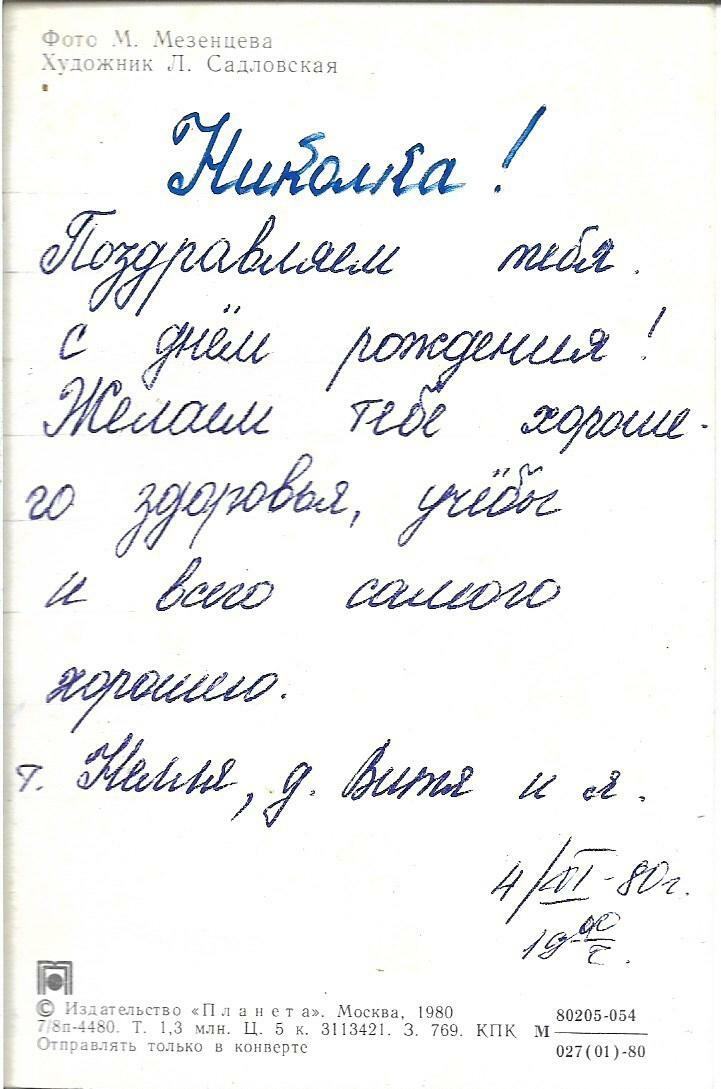 Фото М. Мезенцева
Художник Л. Садловская
Николка!
Поздравляем тебя
с днём рождения!
Желаем тебе хороше-
го здоровья, учёбы
и всего самого
хорошего.
т. Нелля, д. Витя и я.
4/XI-80г.
19 00 ч.
© Издательство «Планета». Москва, 1980
7/8п-4480. Т. 1,3 млн. Ц. 5 к. 3113421. З. 769. КПК
Отправлять только в конверте
М 80205-054
027(01)-80